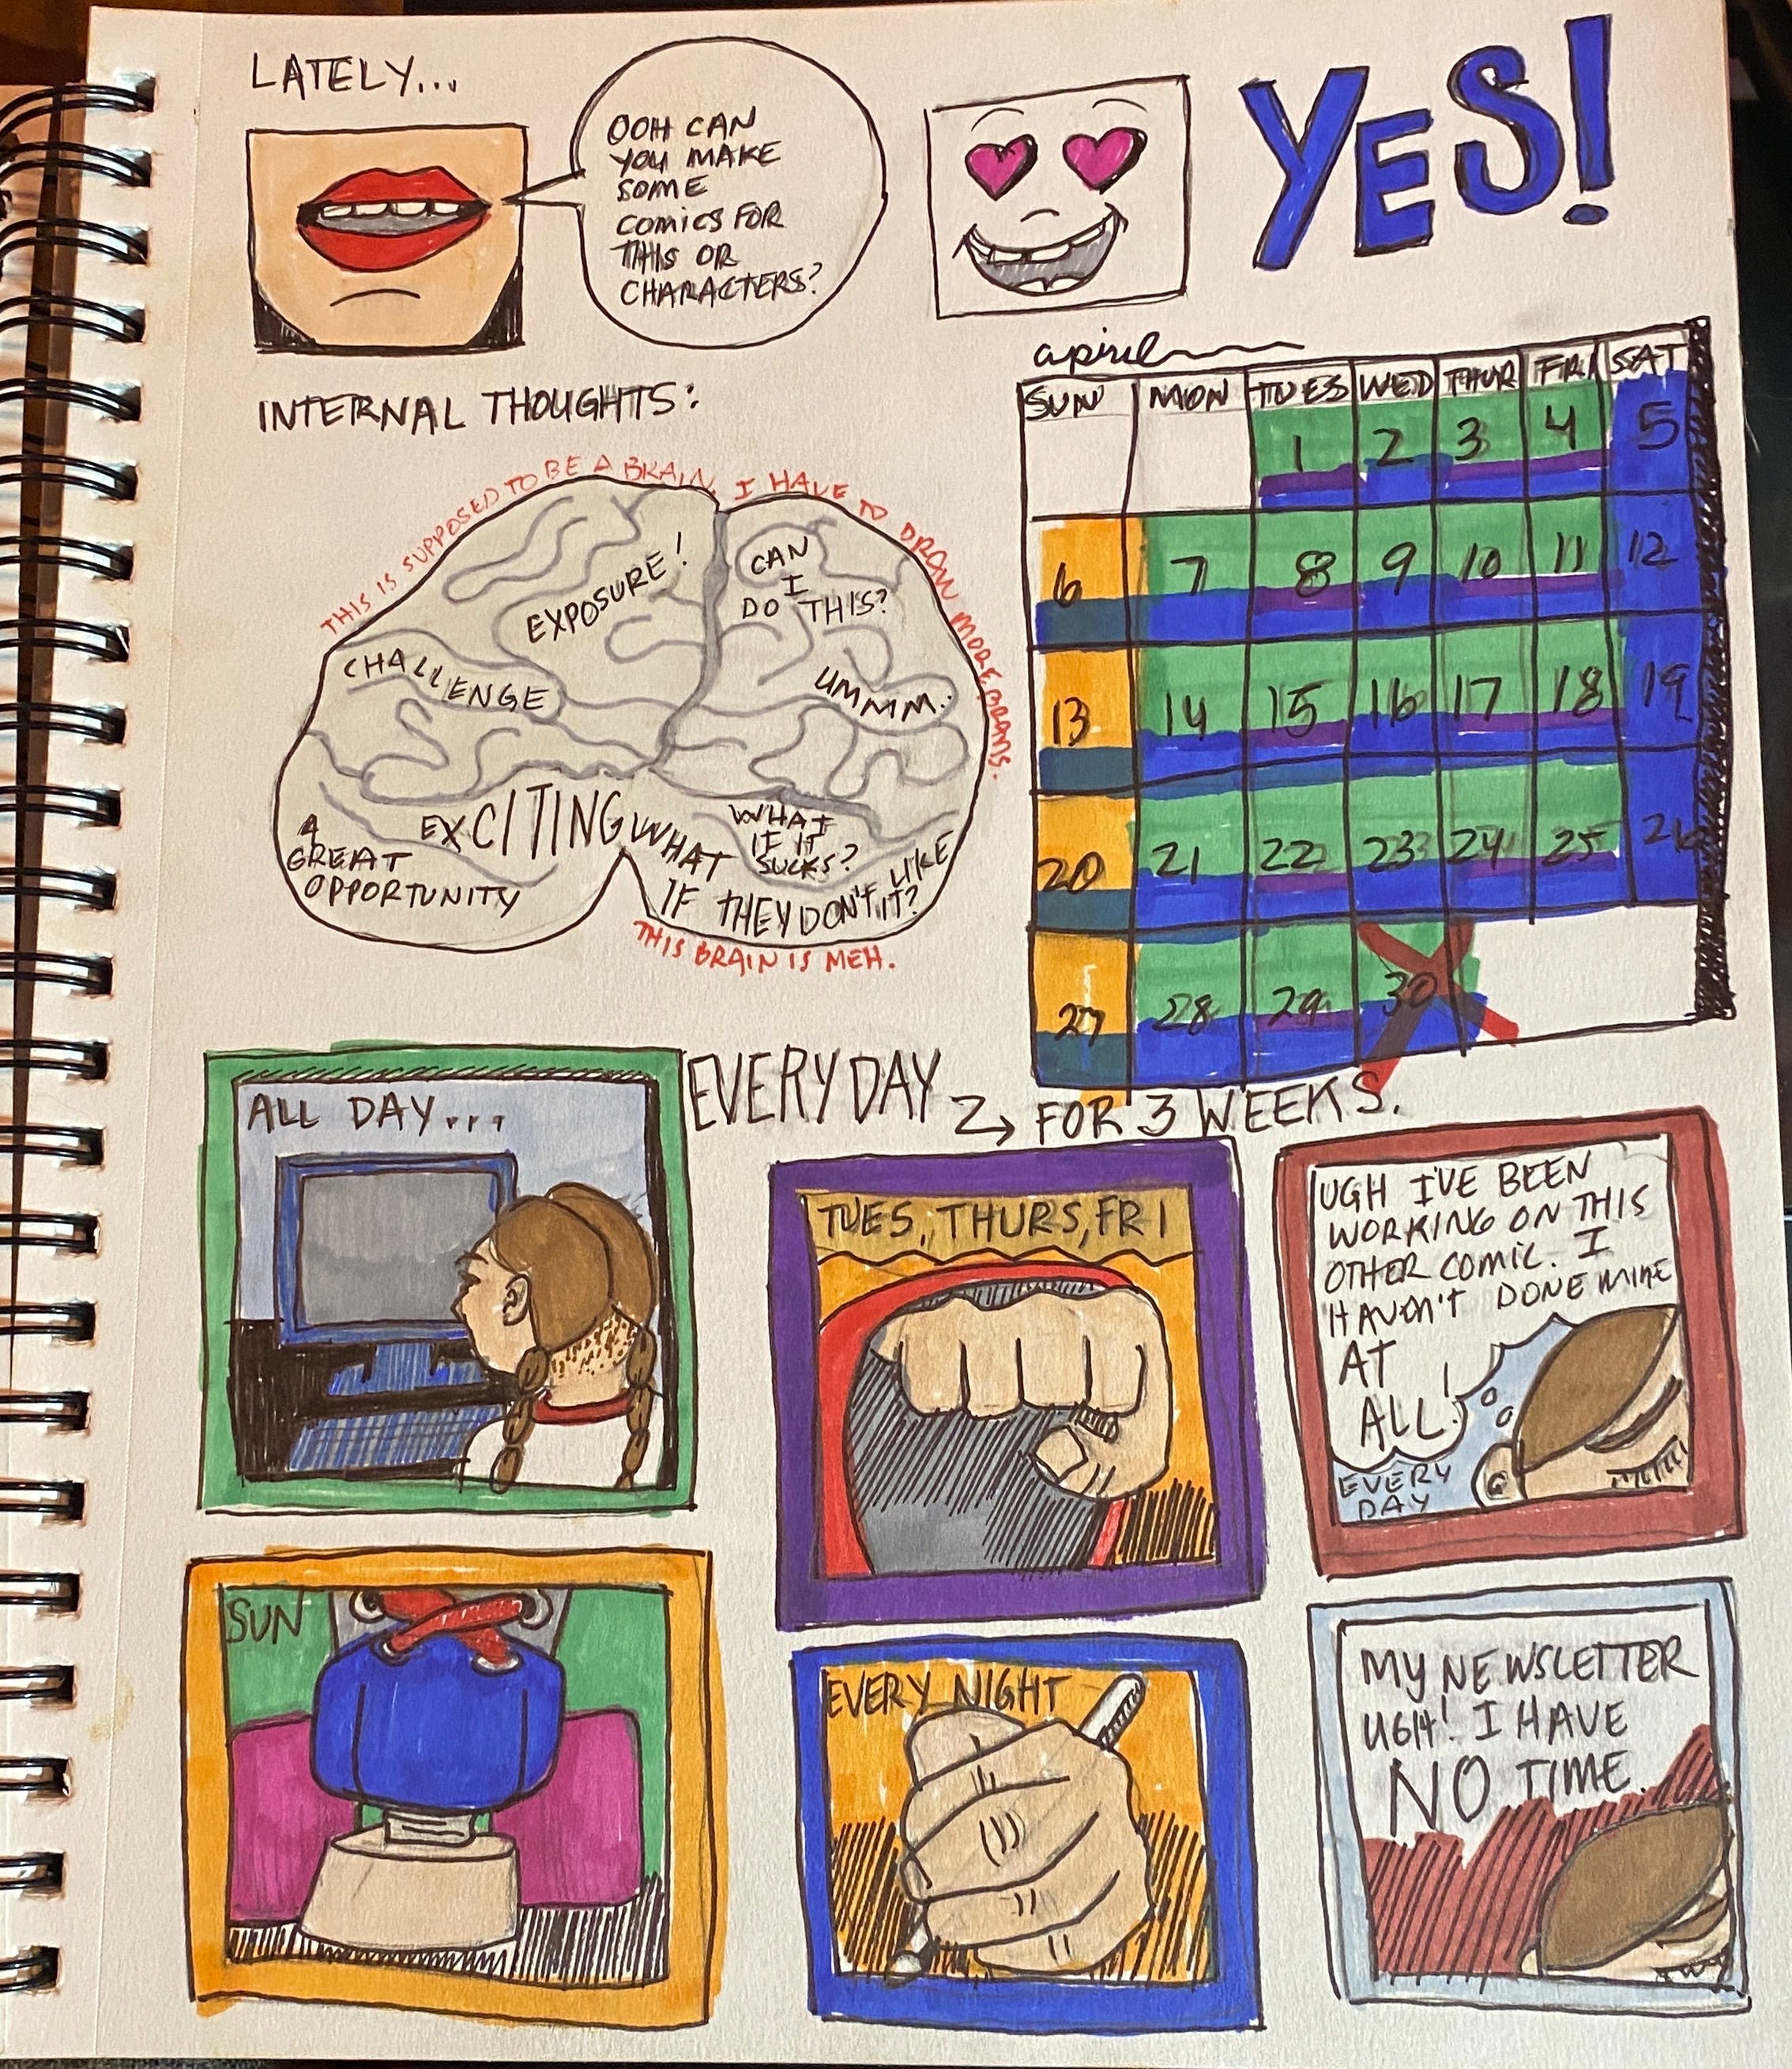 LATELY...
OOH CAN
YOU MAKE
SOME
COMICS FOR
THIS OR
CHARACTERS?
YES!
INTERNAL THOUGHTS:
THIS IS SUPPOSED TO BE A BRAIN. I HAVE TO DRAW MORE BRAINS.
EXPOSURE!
CHALLENGE
A
GREAT
OPPORTUNITY
EXCITING
CAN
I
DO THIS?
UMMM.
WHAT
IF IT
SUCKS?
WHAT
IF THEY DON'T LIKE
IT?
THIS BRAIN IS MEH.
april
SUN MON TUES WED THUR FRI SAT
1 2 3 4 5
6 7 8 9 10 11 12
13 14 15 16 17 18 19
20 21 22 23 24 25 26
27 28 29 30
EVERYDAY
FOR 3 WEEKS.
ALL DAY...
TUES., THURS, FRI
UGH I'VE BEEN
WORKING ON THIS
OTHER COMIC. I
HAVEN'T DONE MINE
AT
ALL!
EVERY
DAY
SUN
EVERY NIGHT
MY NEWSLETTER
UGH! I HAVE
NO TIME.